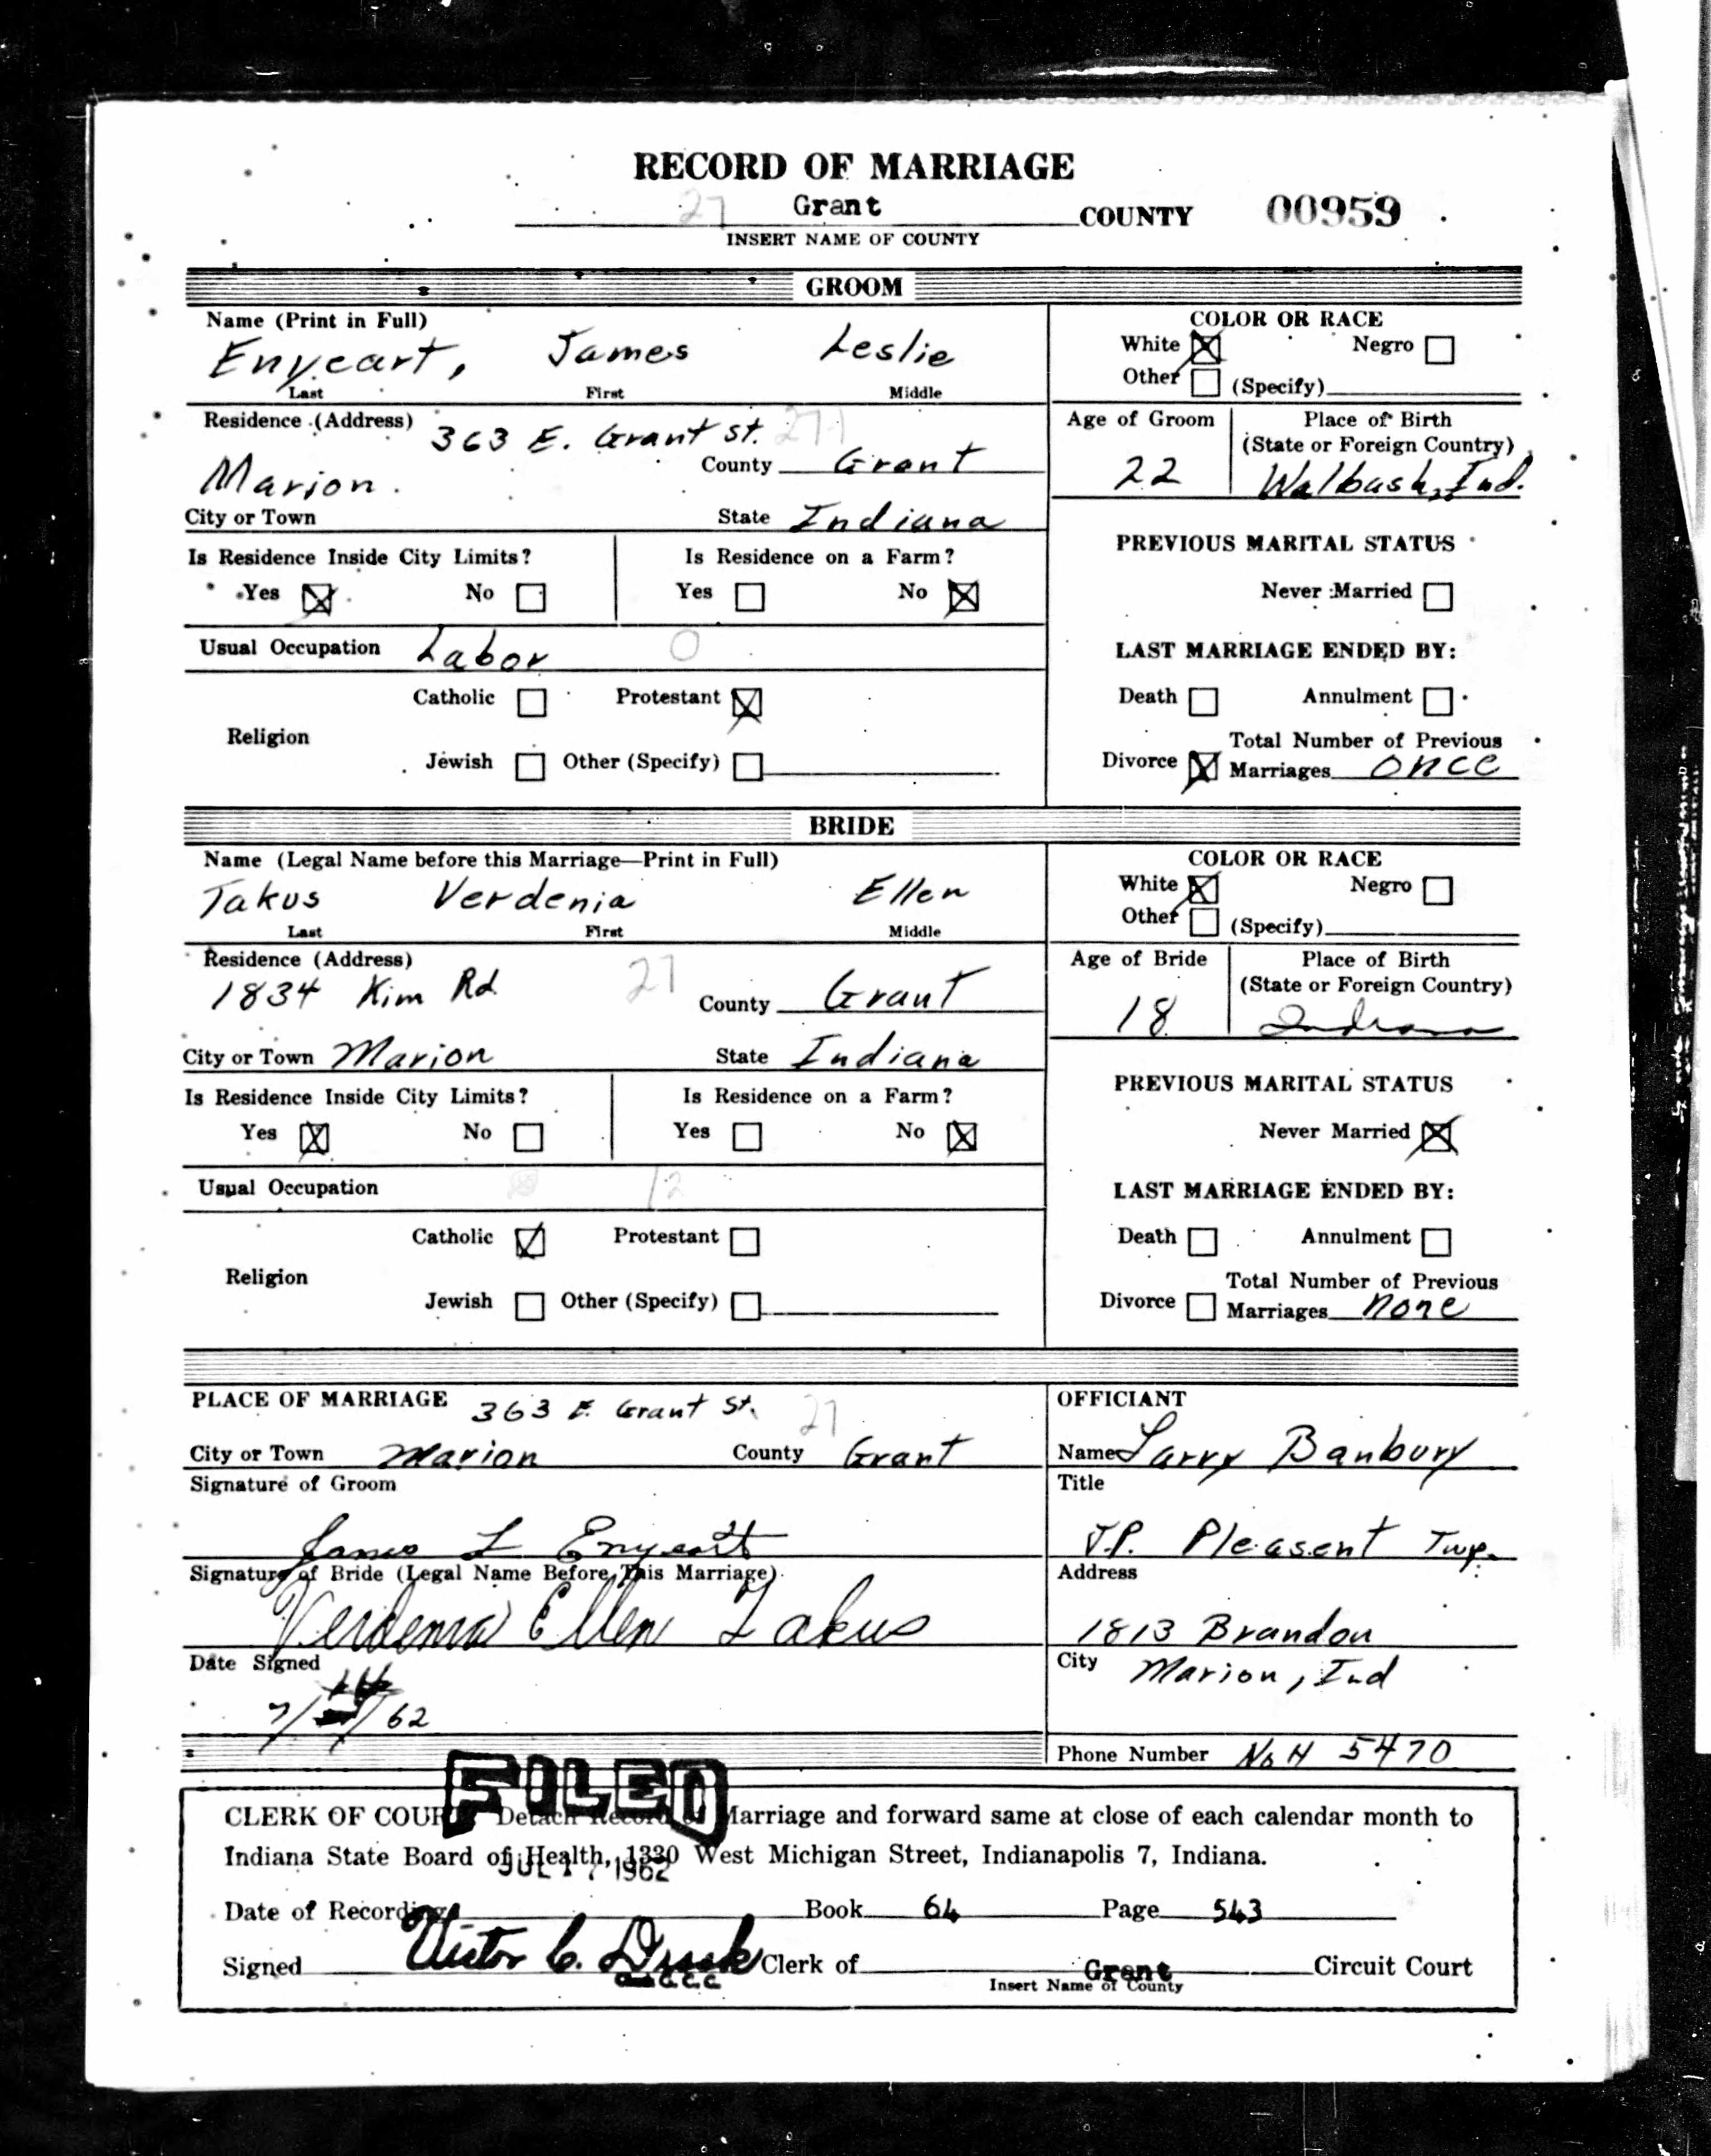 RECORD OF MARRIAGE
27 Grant COUNTY 00959
INSERT NAME OF COUNTY
GROOM
Name (Print in Full)
Enyeart, James Leslie
Last First Middle
COLOR OR RACE
White Negro
Other (Specify)
Residence (Address) 363 E. Grant St. 27
Marion County Grant
City or Town State Indiana
Age of Groom Place of Birth
(State or Foreign Country)
22 Walbash, Ind.
Is Residence Inside City Limits? Is Residence on a Farm?
Yes No Yes No
PREVIOUS MARITAL STATUS
Never Married
Usual Occupation Labor 0
LAST MARRIAGE ENDED BY:
Catholic Protestant
Death Annulment
Religion
Jewish Other (Specify)
Total Number of Previous
Divorce Marriages once
BRIDE
Name (Legal Name before this Marriage—Print in Full)
Takus Verdenia Ellen
Last First Middle
COLOR OR RACE
White Negro
Other (Specify)
Residence (Address)
1834 Kim Rd 27 County Grant
City or Town Marion State Indiana
Age of Bride Place of Birth
(State or Foreign Country)
18 Indiana
Is Residence Inside City Limits? Is Residence on a Farm?
Yes No Yes No
PREVIOUS MARITAL STATUS
Never Married
Usual Occupation 12
LAST MARRIAGE ENDED BY:
Catholic Protestant
Death Annulment
Religion
Jewish Other (Specify)
Total Number of Previous
Divorce Marriages none
PLACE OF MARRIAGE 363 E. Grant St. 27
City or Town Marion County Grant
Signature of Groom
James L Enyeart
Signature of Bride (Legal Name Before This Marriage)
Verdenia Ellen Takus
Date Signed
7/14/62
OFFICIANT
Name Larry Banbury
Title
J.P. Pleasent Twp.
Address
1813 Brandon
City Marion, Ind
Phone Number No H 5470
FILED
CLERK OF COURT Detach Record of Marriage and forward same at close of each calendar month to
Indiana State Board of Health, 1330 West Michigan Street, Indianapolis 7, Indiana.
JUL 17 1962
Date of Recording Book 64 Page 543
Signed Victor C. Clerk of Grant Circuit Court
Insert Name of County